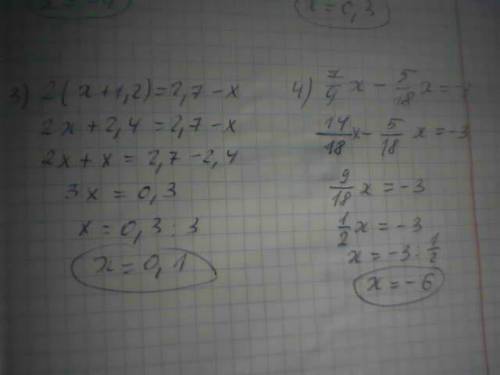 x=-4
x=0,3
3) 2(x+1,2)=2,7-x
2x+2,4=2,7-x
2x+x=2,7-2,4
3x=0,3
x=0,3:3
x=0,1
4) 7/9 x - 5/18 x=-3
14/18 x - 5/18 x=-3
9/18 x=-3
1/2 x=-3
x=-3:1/2
x=-6